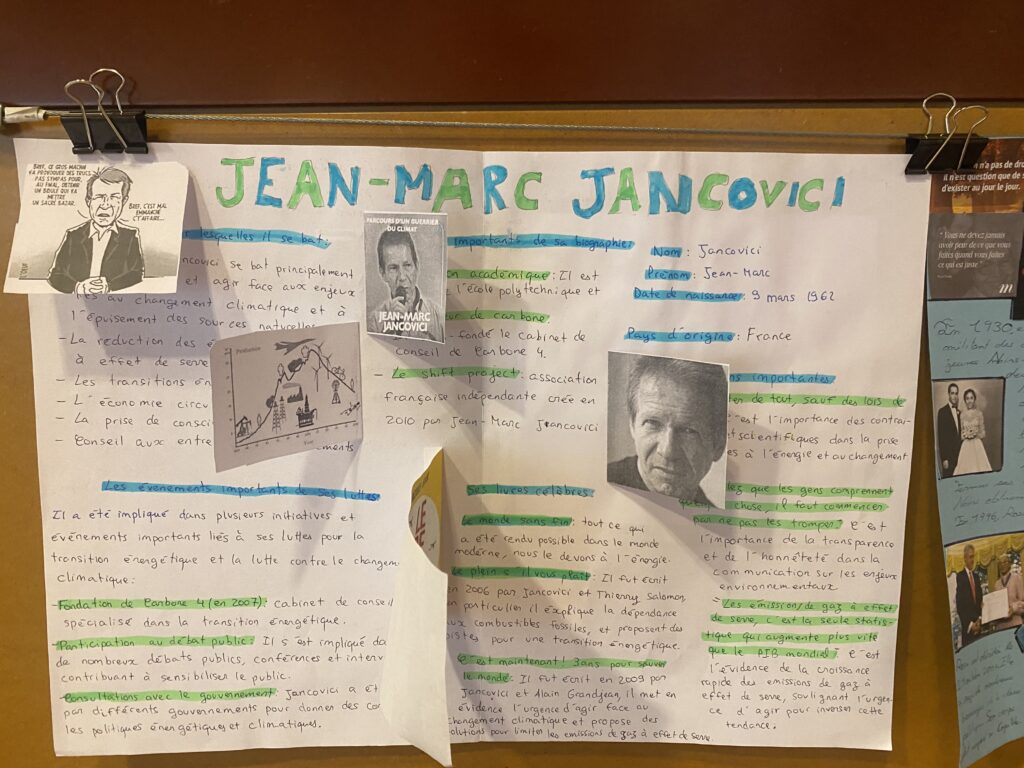 JEAN-MARC JANCOVICI
BREF, CE GROS MACHIN
VA PROVOQUER DES TRUCS
PAS SYMPAS POUR,
AU FINAL, OBTENIR
UN BIDULE QUI VA
METTRE
UN SACRÉ BAZAR.
BREF, C'EST MAL
EMMANCHÉ
C'T'AFFAIRE...
lesquelles il se bat:
ncovici se bat principalement
et agir face aux enjeux
au changement climatique et à
l'épuisement des sources naturelles
- La réduction des
à effet de serre
- Les transitions én
- L'économie circu
- La prise de consci
- Conseil aux entre
ements
Production
Year
Les évènements importants de ses luttes
Il a été impliqué dans plusieurs initiatives et
évènements importants liés à ses luttes pour la
transition énergétique et la lutte contre le changem
climatique:
- Fondation de Carbone 4 (en 2007): cabinet de conseil
spécialisé dans la transition énergétique.
- Participation au débat public: Il s'est impliqué da
de nombreux débats publics, conférences et interv
contribuant à sensibiliser le public.
- Consultations avec le gouvernement: Jancovici a ét
par différents gouvernements pour donner des con
les politiques énergétiques et climatiques.
PARCOURS D'UN GUERRIER
DU CLIMAT
JEAN-MARC
JANCOVICI
importants de sa biographie:
on académique: Il est
l'école polytechnique et
de carbone:
fondé le cabinet de
conseil de Carbone 4.
- Le shift project: association
française indépendante créé en
2010 par Jean-Marc Jancovici
Ses livres célèbres
Le monde sans fin: tout ce qui
a été rendu possible dans le monde
moderne, nous le devons à l'énergie.
Le plein s'il vous plaît: Il fut écrit
en 2006 par Jancovici et Thierry Salomon,
en particulier il explique la dépendance
aux combustibles fossiles, et proposent des
pistes pour une transition énergétique.
C'est maintenant! 3ans pour sauver
le monde: Il fut écrit en 2009 par
Jancovici et Alain Grandjean, il met en
évidence l'urgence d'agir face au
changement climatique et propose des
solutions pour limiter les emissions de gaz à effet de serre.
Nom: Jancovici
Prénom: Jean-Marc
Date de naissance: 9 mars 1962
Pays d'origine: France
importantes
de tout, sauf des lois de
c'est l'importance des contrai-
scientifiques dans la prise
à l'énergie et au changement
que les gens comprennent
quelque chose, il faut commencer
par ne pas les tromper: C'est
l'importance de la transparence
et de l'honnêteté dans la
communication sur les enjeux
environnementaux
- Les émission de gaz à effet
de serre, c'est la seule statis-
tique qui augmente plus vite
que le PIB mondial: C'est
l'évidence de la croissance
rapide des emissions de gaz à
effet de serre, soulignant l'urgen-
ce d'agir pour inverser cette
tendance.
n'a pas de dro
il n'est question que de s
d'exister au jour le jour.
Vous ne devez jamais
avoir peur de ce que vous
faites quand vous faites
ce qui est juste
En 1930,